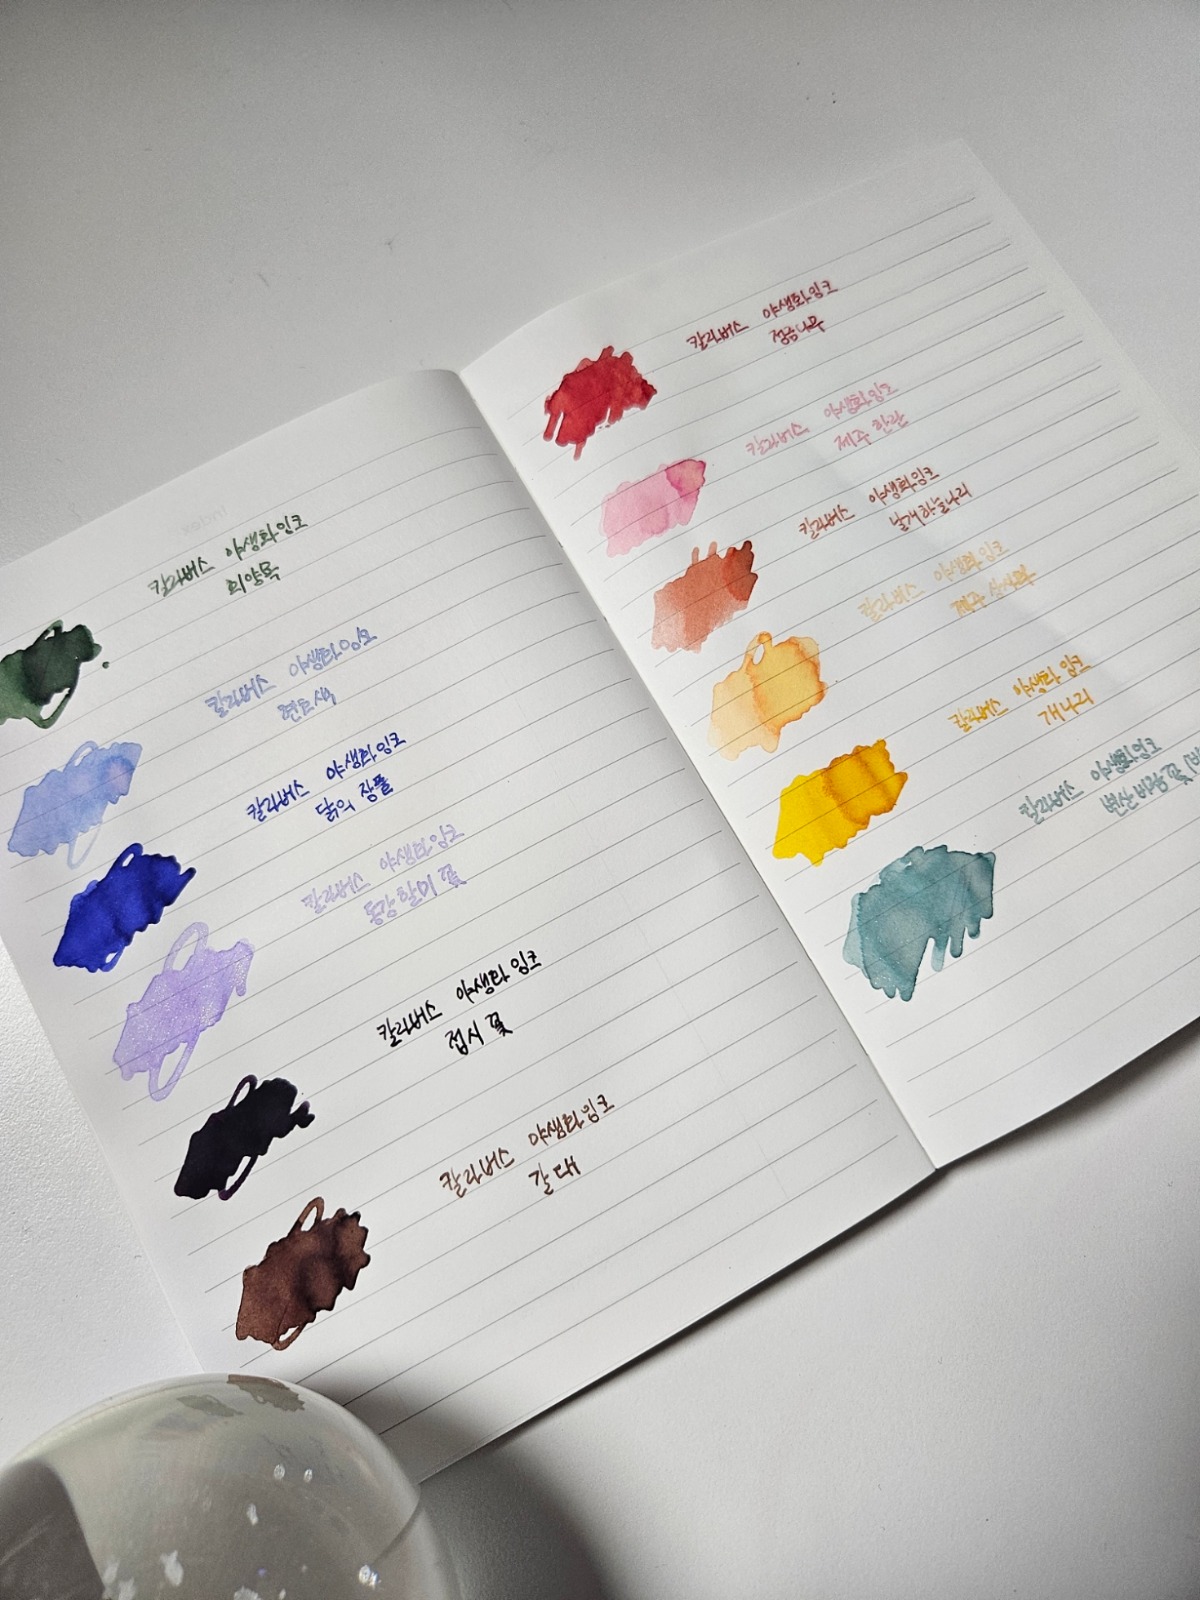 칼라버스 야생화잉크
회양목
칼라버스 야생화잉크
칼라버스 야생화잉크
닭의 장풀
칼라버스 야생화잉크
동강 할미 꽃
칼라버스 야생화 잉크
접시 꽃
칼라버스 야생화잉크
갈대
칼라버스 야생화잉크
칼라버스 야생화잉크
제주 한란
칼라버스 야생화잉크
날개하늘나리
칼라버스 야생화잉크
제주 상사화
칼라버스 야생화 잉크
개나리
칼라버스 야생화잉크
변산 바람 꽃